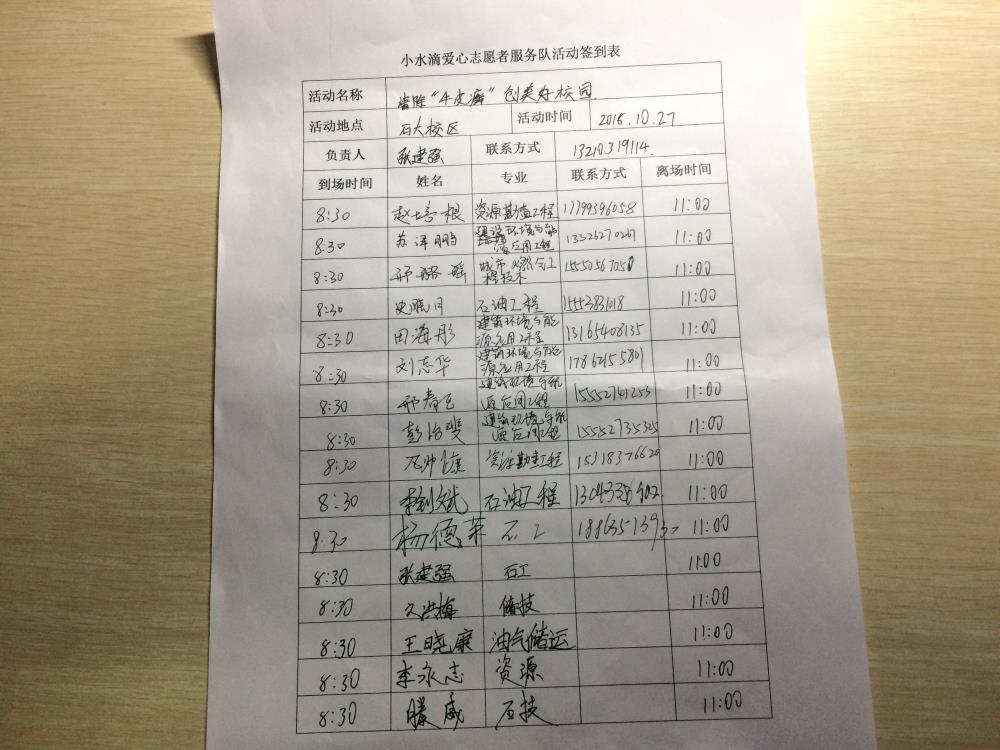 小水滴爱心志愿者服务队活动签到表
活动名称 清除“牛皮癣”创美好校园
活动地点 石大校区 活动时间 2018.10.27
负责人 张建强 联系方式 13210319114.
到场时间 姓名 专业 联系方式 离场时间
8:30 赵培根 资源勘查工程 17799396058 11:00
8:30 苏泽鹏 建筑环境与能源应用工程 11:00
8:30 城市燃气工程技术 15550567050 11:00
8:30 史晓月 石油工程 1553831018 11:00
8:30 田海彤 建筑环境与能源应用工程 13165408135 11:00
8:30 刘志华 建筑环境与能源应用工程 17862155801 11:00
8:30 建筑环境与能源应用工程 15552741253 11:00
8:30 建筑环境与能源应用工程 15552735325 11:00
8:30 资源勘查工程 15318376620 11:00
8:30 石油工程 11:00
8:30 杨德荣 石工 11:00
8:30 张建强 石工 11:00
8:30 储技 11:00
8:30 王晓康 油气储运 11:00
8:30 李永志 资源 11:00
8:30 滕威 石技 11:00